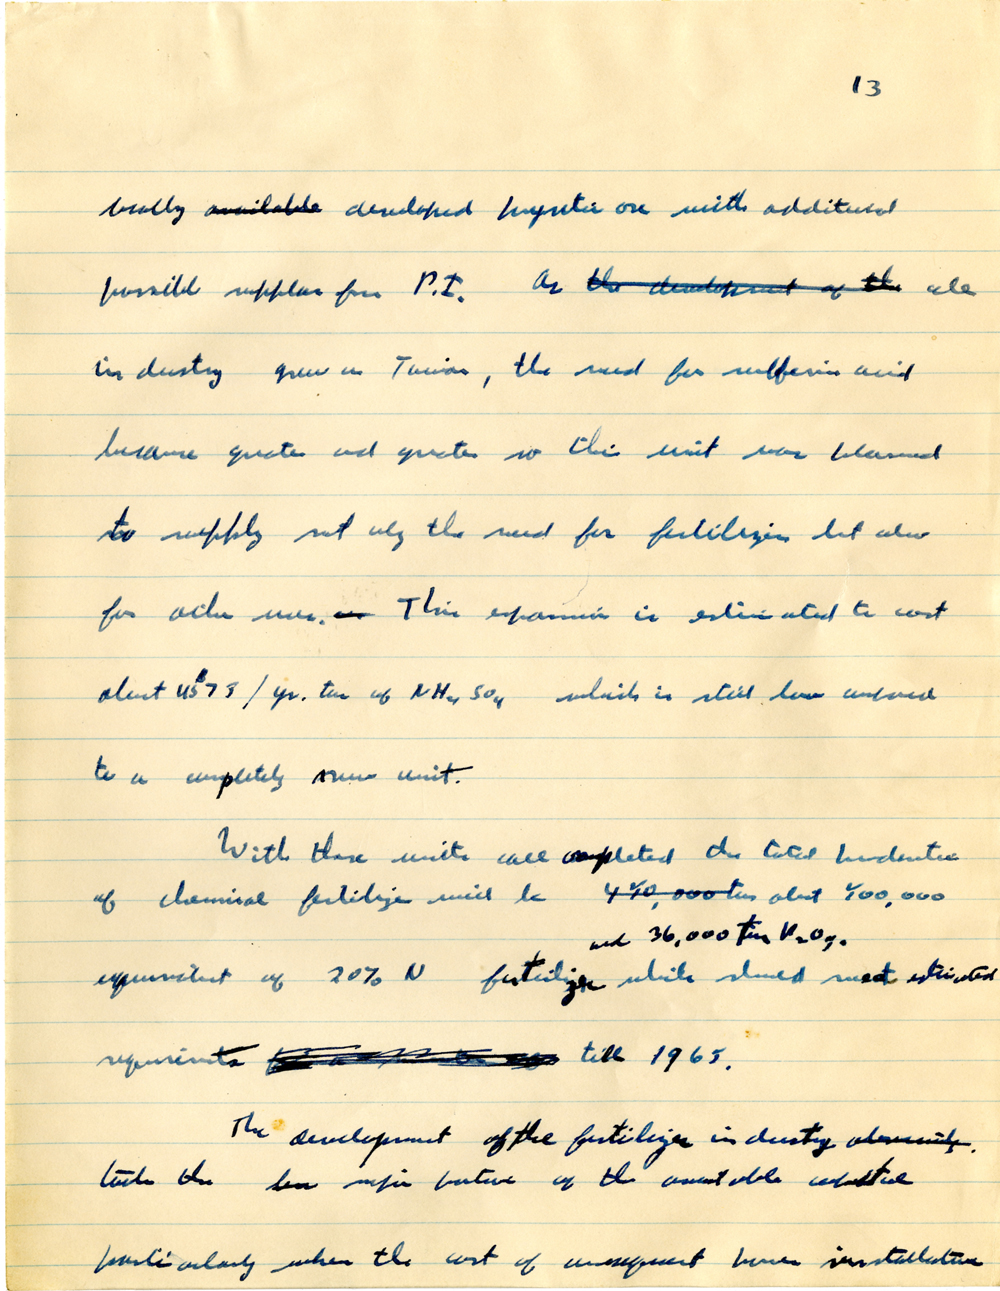 13
locally available developed pyrite ore with additional
possible supplies from P.I. As the development of the all
industry grew in Taiwan, the need for sulfuric acid
became greater and greater so this unit was planned
to supply not only the need for fertilizer but also
for other uses. This expansion is estimated to cost
about US$75/yr. ton of NH4SO4 which is still low compared
to a completely new unit.
With these units all completed the total production
of chemical fertilizer will be 440,000 tons about 400,000
and 36,000 tons P2O5.
equivalent of 20% N fertilizer which should meet estimated
requirements till 1965.
The development of the fertilizer industry
took the major portion of the available capital
particularly when the cost of consequent power installation